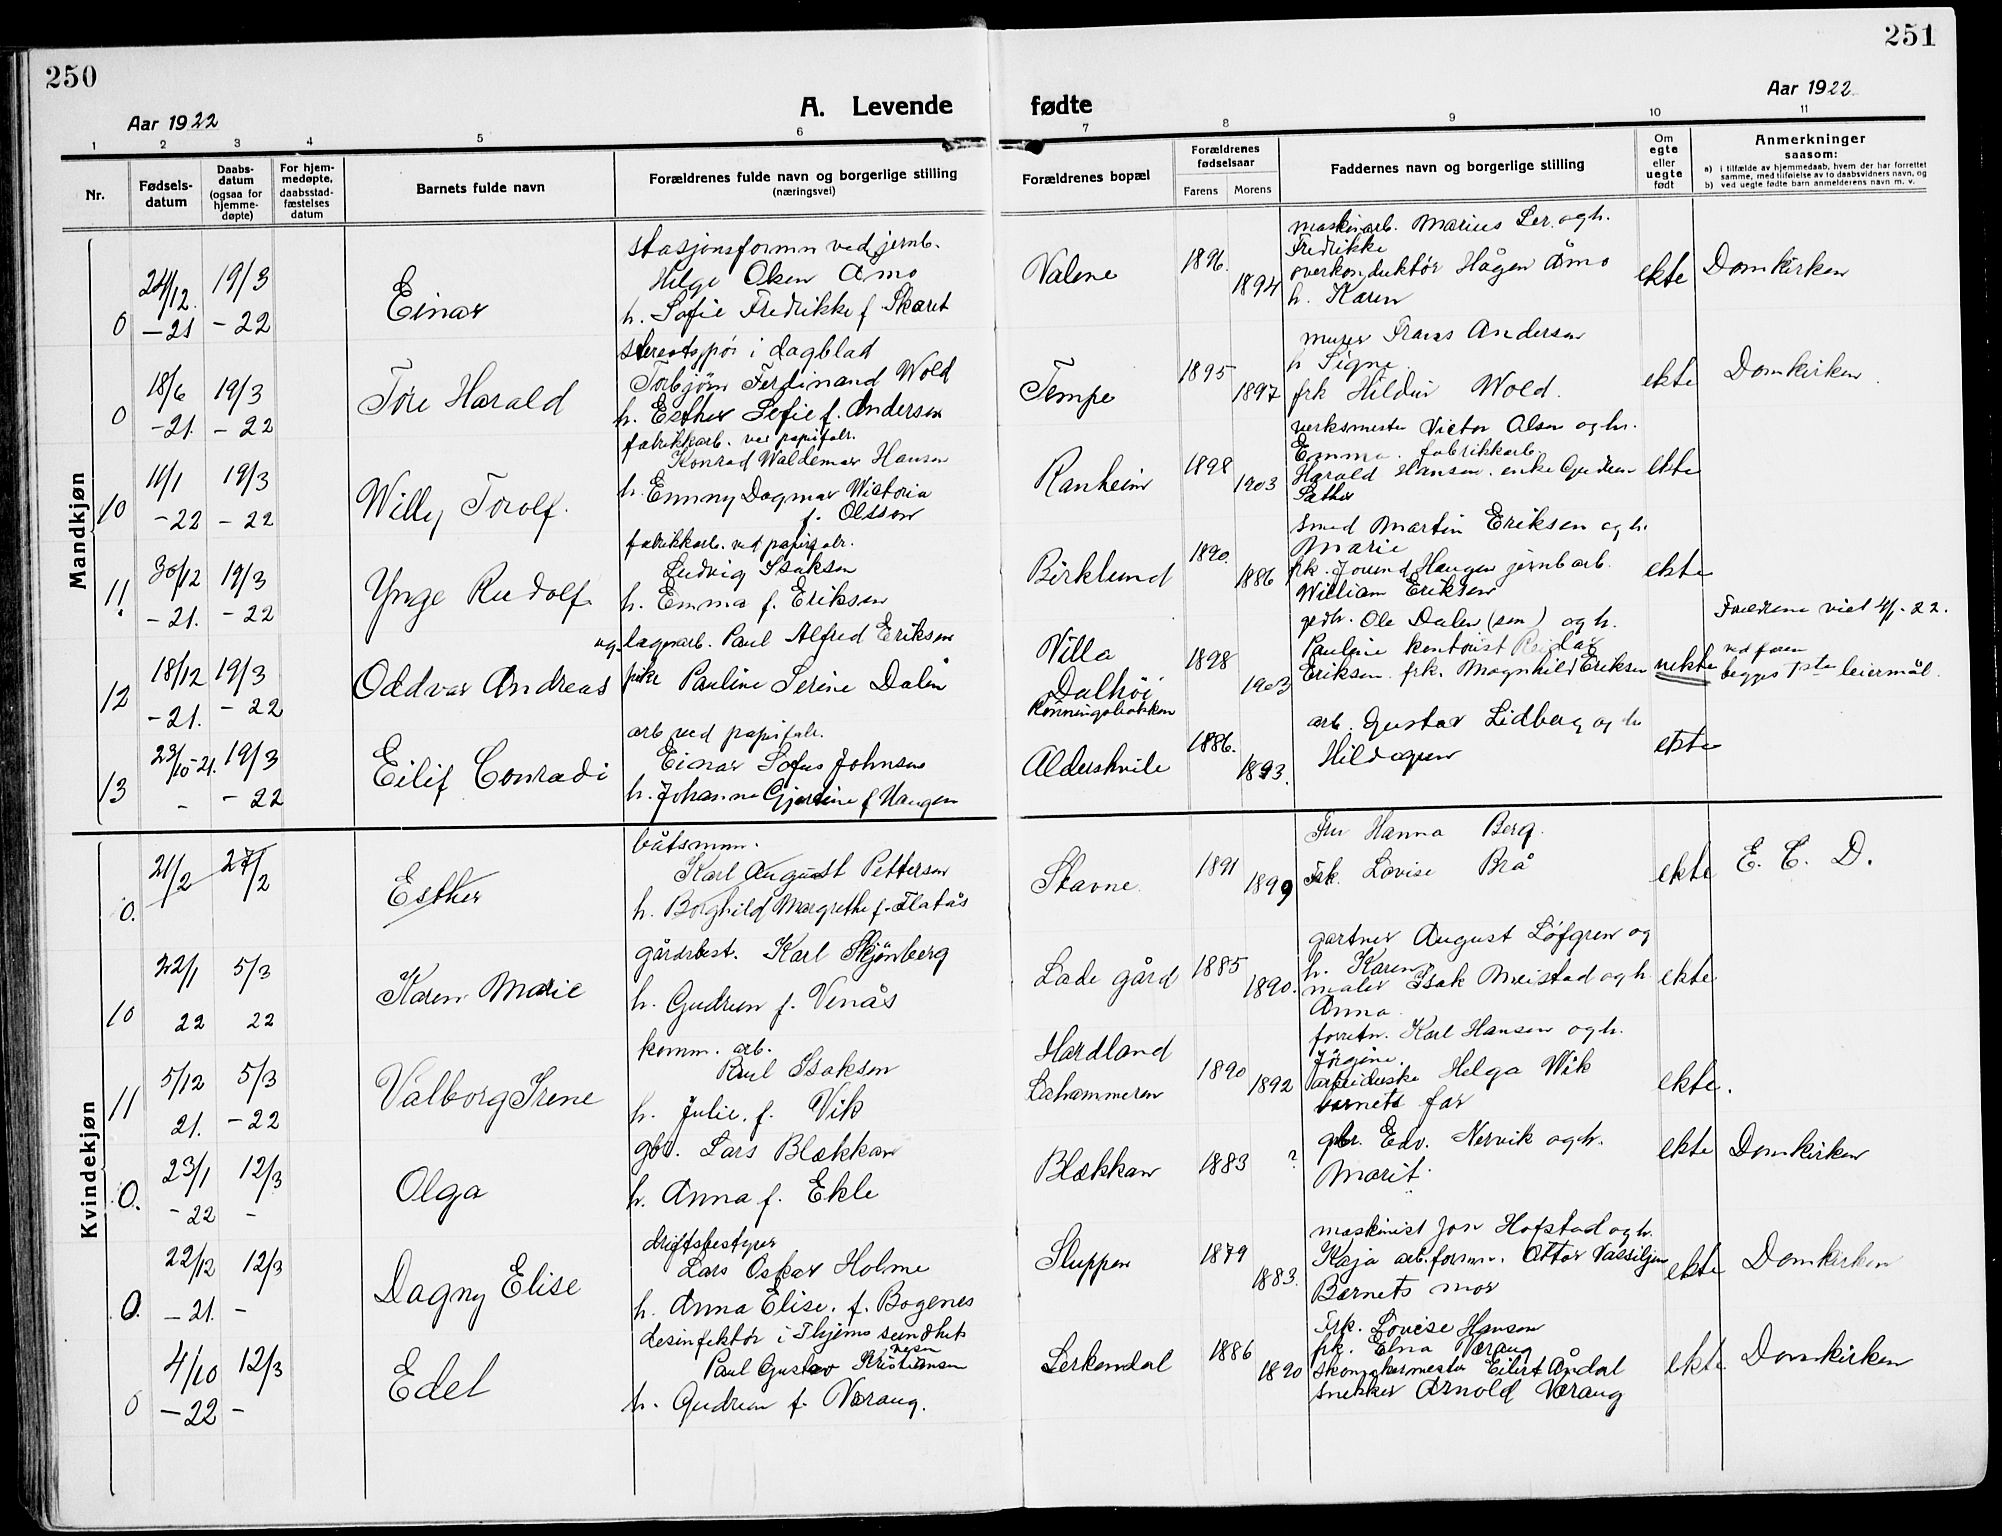 250
251
Aar 1922
A. Levende fødte
Aar 1922
1 2 3 4 5 6 7 8 9 10 11
Nr.
Fødsels-
datum
Daabs-
datum
(ogsaa for
hjemme-
døpte)
For hjem-
medøpte,
daabsstad-
fæstelses
datum
Barnets fulde navn
Forældrenes fulde navn og borgerlige stilling
(næringsvei)
Forældrenes bopæl
Forældrenes
fødselsaar
Farens Morens
Faddernes navn og borgerlige stilling
Om
egte
eller
uegte
født
Anmerkninger
saasom:
a) i tilfælde av hjemmedaab, hvem der har forrettet
samme, med tilføielse av to daabsvidners navn, og
b) ved uegte fødte barn anmelderens navn m. v.
Mandkjøn
0 24/12 -21 19/3 -22
Einar
stasjonsformn ved jernb.
Helge Olsen Åmo
h. Sofie Fredrikke f Skaret
Valene 1896. 1894
maskinarb. Marius Ler. og h.
Fredrikke
overkonduktør Hågen Åmo
h. Karen
ekte Domkirken
0 18/6 -21. 19/3 -22
Tore Harald
stereotypør i dagblad
Torbjørn Ferdinand Wold
h. Esther Sofie f. Andersen
Tempe 1895 1897
murer Frans Andersen
h Signe
frk Hildur Wold.
ekte Domkirken
10 11/1 -22 19/3 -22
Willy Torolf.
fabrikkarb. ved papirfabr.
Konrad Waldemar Hansen
h. Emmy Dagmar Wictoria
f. Olsson
Ranheim 1898 1903
verksmester Victor Olsen og h.
Emma. fabrikkarb.
Harald Hansen. enke Gudrun
Sæther
ekte
11. 30/12 -21. 19/3 -22
Ynge Rudolf
fabrikkarb. ved papirfabr.
Ludvig Isaksen
h. Emma f. Eriksen
Birklund 1890. 1886
smed Martin Eriksen og h.
Marie
frk. Jorund Haugen jernb arb.
William Eriksen
ekte
12 18/12 -21. 19/3 -22
Oddvar Andreas
ug. lagerarb. Paul Alfred Eriksen
pike Pauline Serine Dalen
Villa
Dalhøi
Rønningsbakken
1898 1903
gedr. Ole Dalen (sen) og h.
Pauline kontorist Reidar
Eriksen. frk. Magnhild Eriksen
uekte
Foreldrene viet 4/1-22.
ved faren
begges 1ste leiermål.
13 23/10-21. - 19/3 -22
Eilif Conradi
arb ved papirfabr.
Einar Sofus Johnsen
h. Johanne Gjertine f Haugen
Alderskvile 1886. 1893.
arb. Gustav Lidberg og h
Hildegun
ekte
Kvindekjøn
0. 21/2 27/2
Esther
båtsmnn.
Karl August Petterson
h. Borghild Margrethe f. Flatås
Stavne. 1891 1899
Fru Hanna Berg.
Frk. Lovise Brå
ekte E. C. D.
10 22/1 22 5/3 22
Karen Marie
gårdsbest. Karl Skjønberg
h. Gudrun f. Venås
Lade gård 1885 1890.
gartner August Løfgren og
h. Karen.
maler Isak Meistad og h
Anna.
ekte
11 5/12 21. 5/3 -22
Valborg Irene
komm. arb.
Paul Isaksen
h. Julie. f. Vik
Hardland
Lahammeren
1890 1892
forretn. Karl Hansen og h.
Jørgine.
arbeiderske Helga Wik
barnets far
ekte.
0. 23/1 -22 12/3 -
Olga
gbr. Lars Blekkan
h. Anna f. Ekle
Blekkan 1883 ?
gbr. Edv. Nervik og h.
Marit.
ekte Domkirken
0. 22/12 -21. 12/3 -
Dagny Elise
driftsbestyrer
Lars Oskar Holme
h. Anna Elise. f. Bogenes
Sluppen 1879 1883.
maskinist Jon Hofstad og h.
Kaja arb. formn. Ottar Vassiljen
Barnets mor
ekte Domkirken
0 4/10 -22 12/3 -
Edel
desinfektør i Thjems sundhets
vesen
Paul Gustav Kristiansen
h. Gudrun f. Værang.
Lerkendal 1886 1890
Frk. Lovise Hansen
frk. Elna Værang
skomakermester Eilert Ådal
snekker Arnold Værang
ekte Domkirken